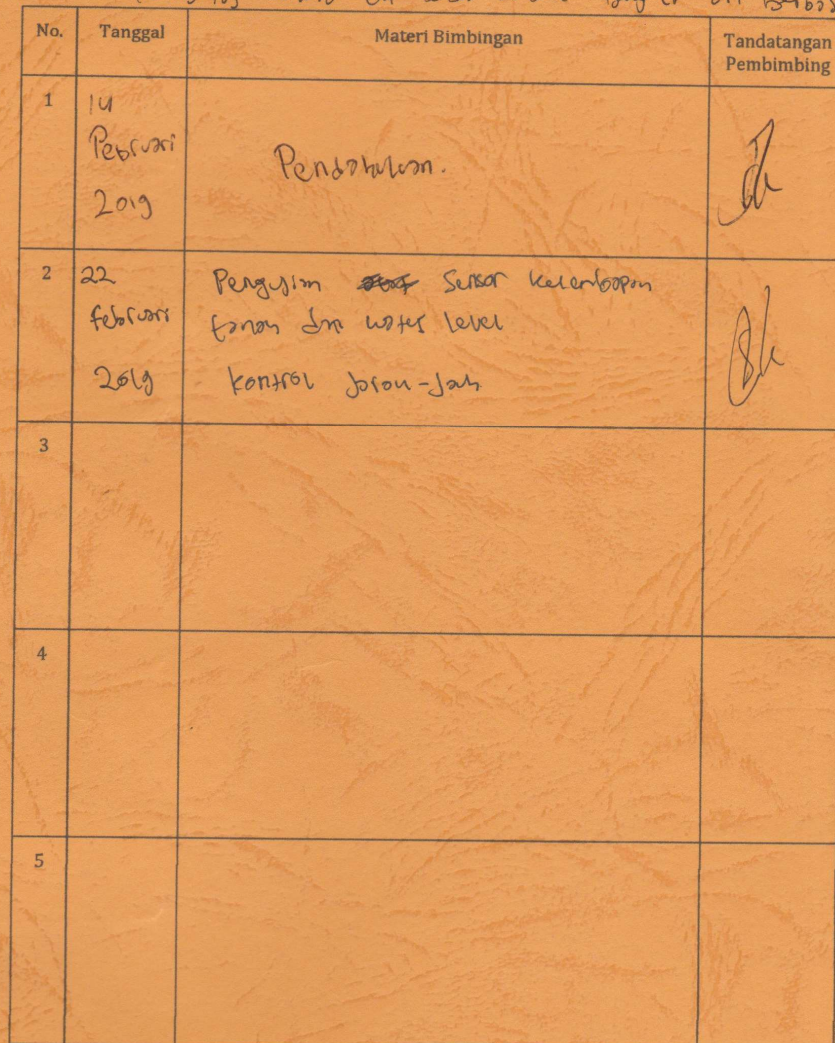 No. Tanggal Materi Bimbingan Tandatangan
Pembimbing
1 14
Pebruari
2019
Pendahuluan.
2 22
februari
2019
Pengujian Sensor kelembapan
tanah dan water level
kontrol jarak-jauh
3
4
5